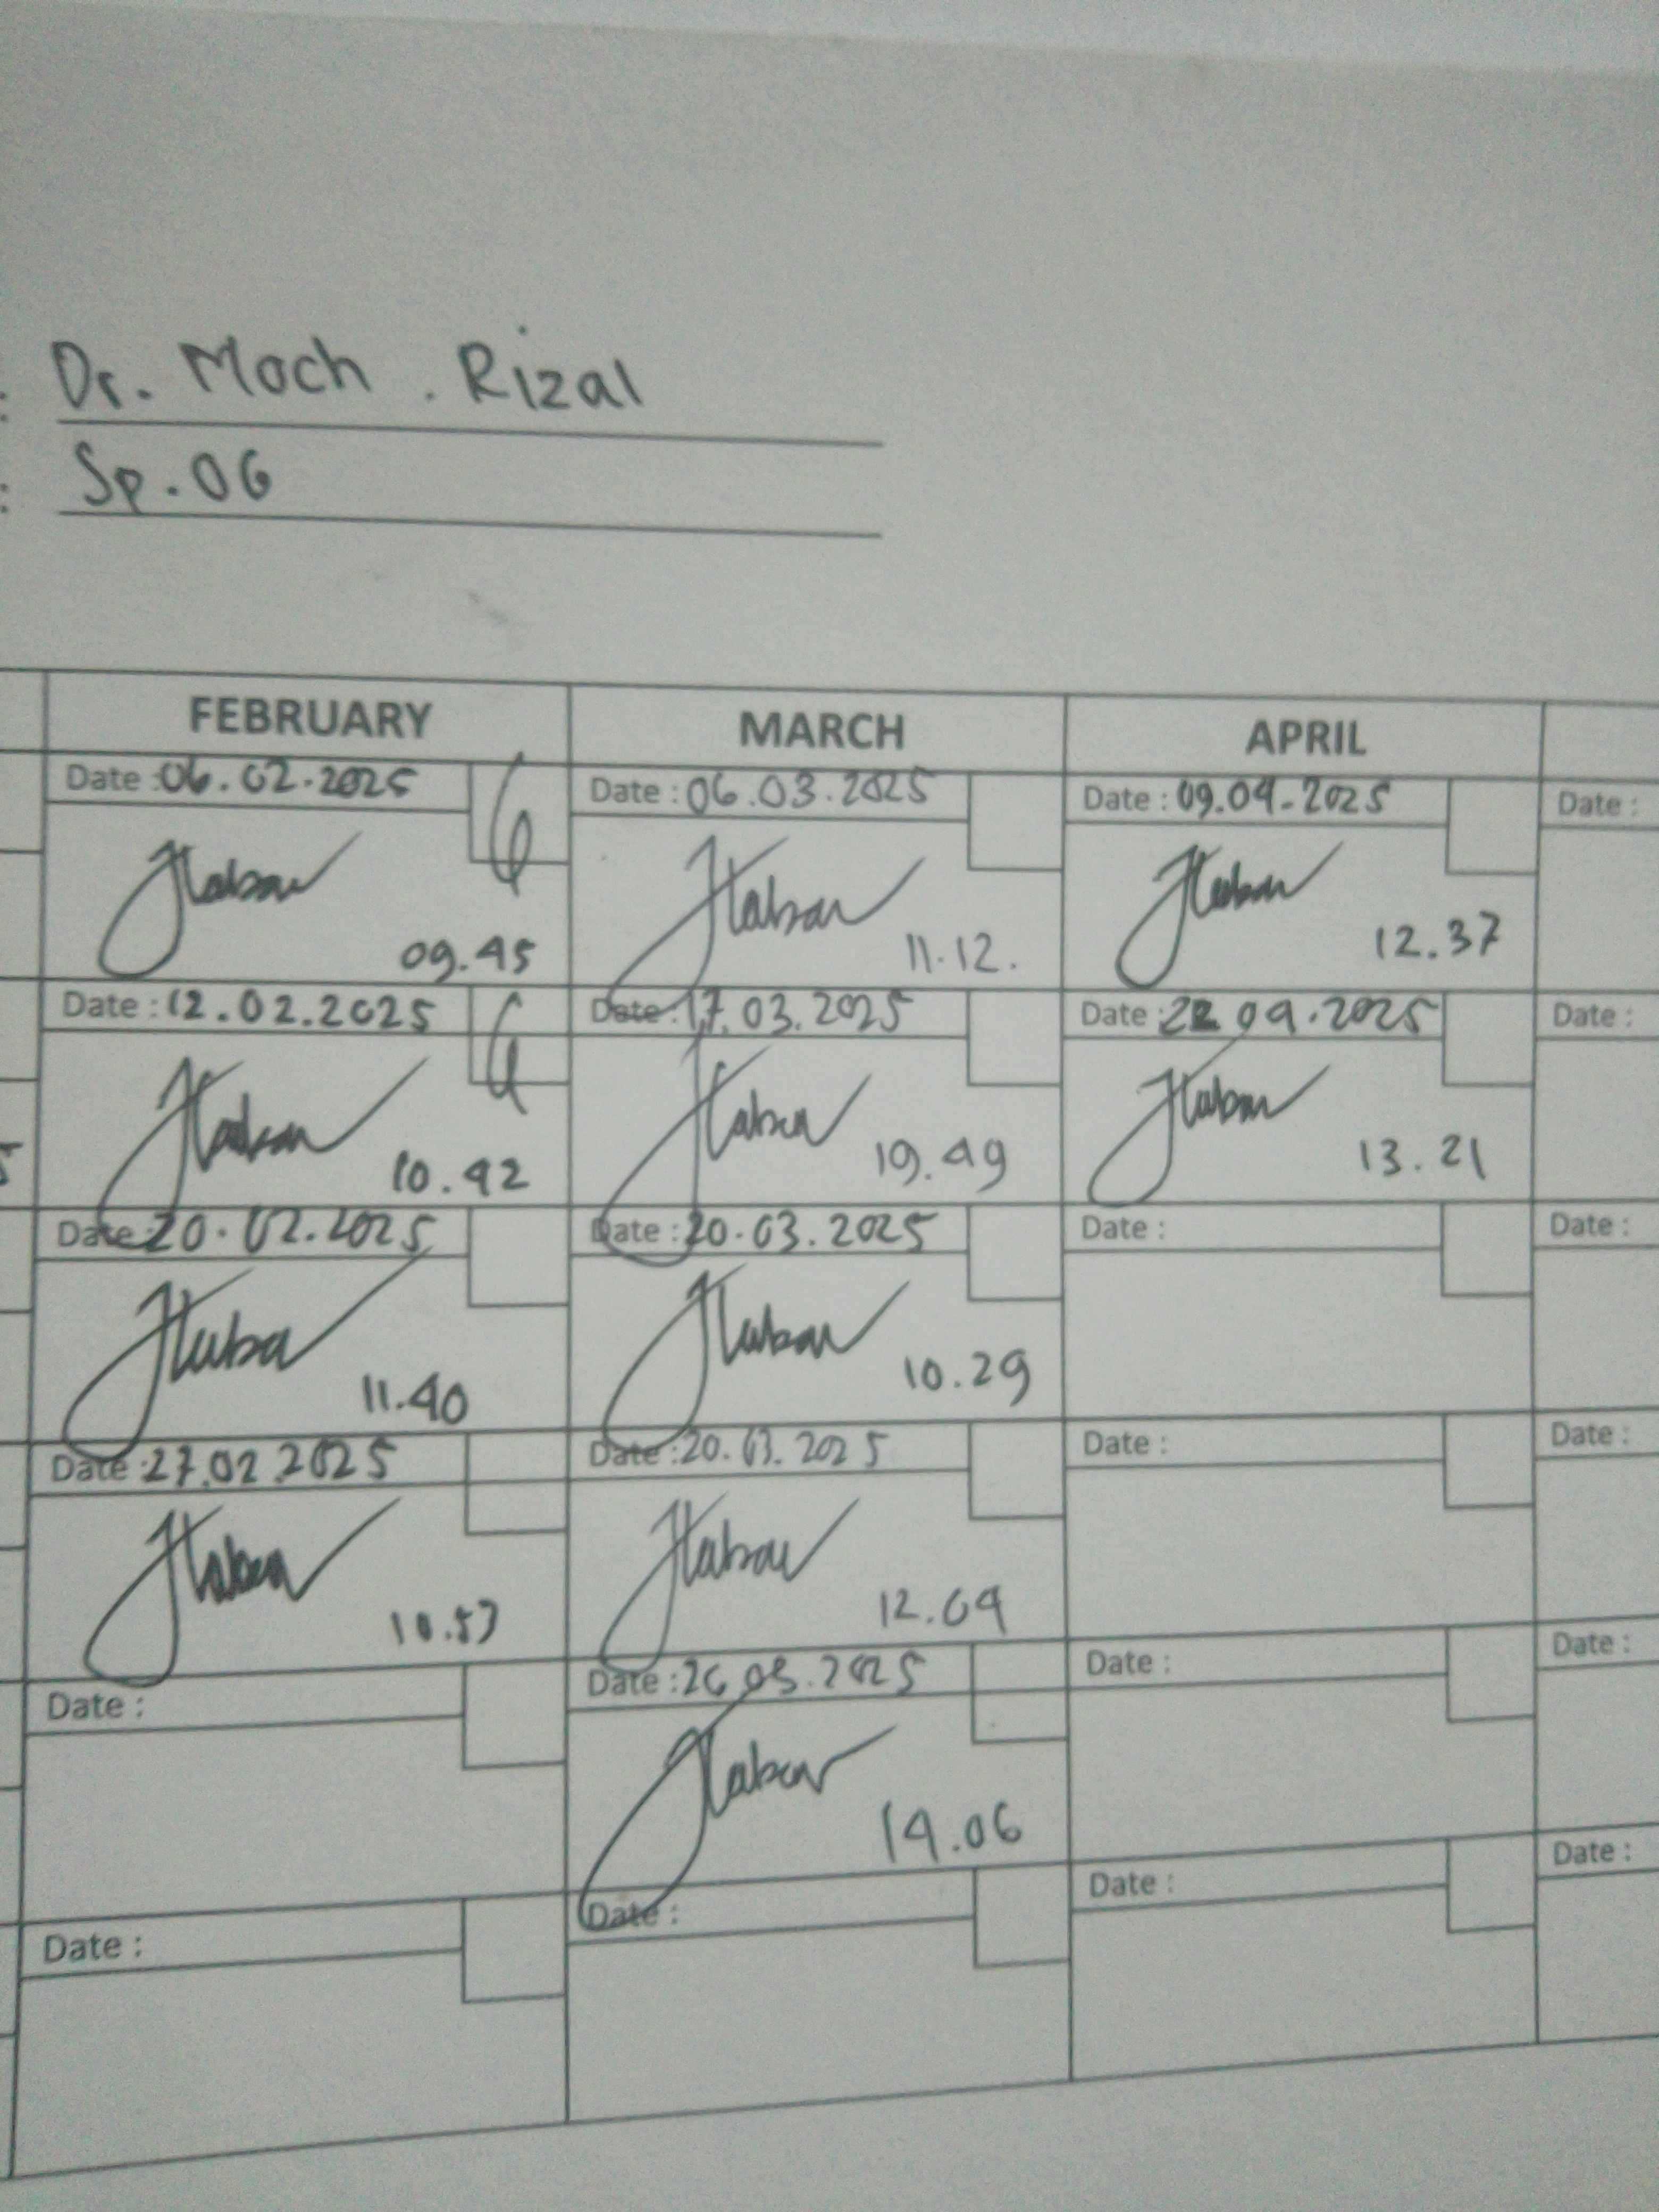 : Dr. Moch. Rizal
: Sp.OG
FEBRUARY MARCH APRIL
Date : 06.02.2025 Date : 06.03.2025 Date : 09.04.2025 Date :
09.45 11.12. 12.37
Date : 12.02.2025 Date : 17.03.2025 Date : 22 04.2025 Date :
10.42 14.49 13.21
Date : 20.02.2025 Date : 20.03.2025 Date : Date :
11.40 10.29
Date : 27.02.2025 Date : 20.03.2025 Date : Date :
12.04
Date : Date : 26.03.2025 Date : Date :
14.06
Date : Date : Date : Date :